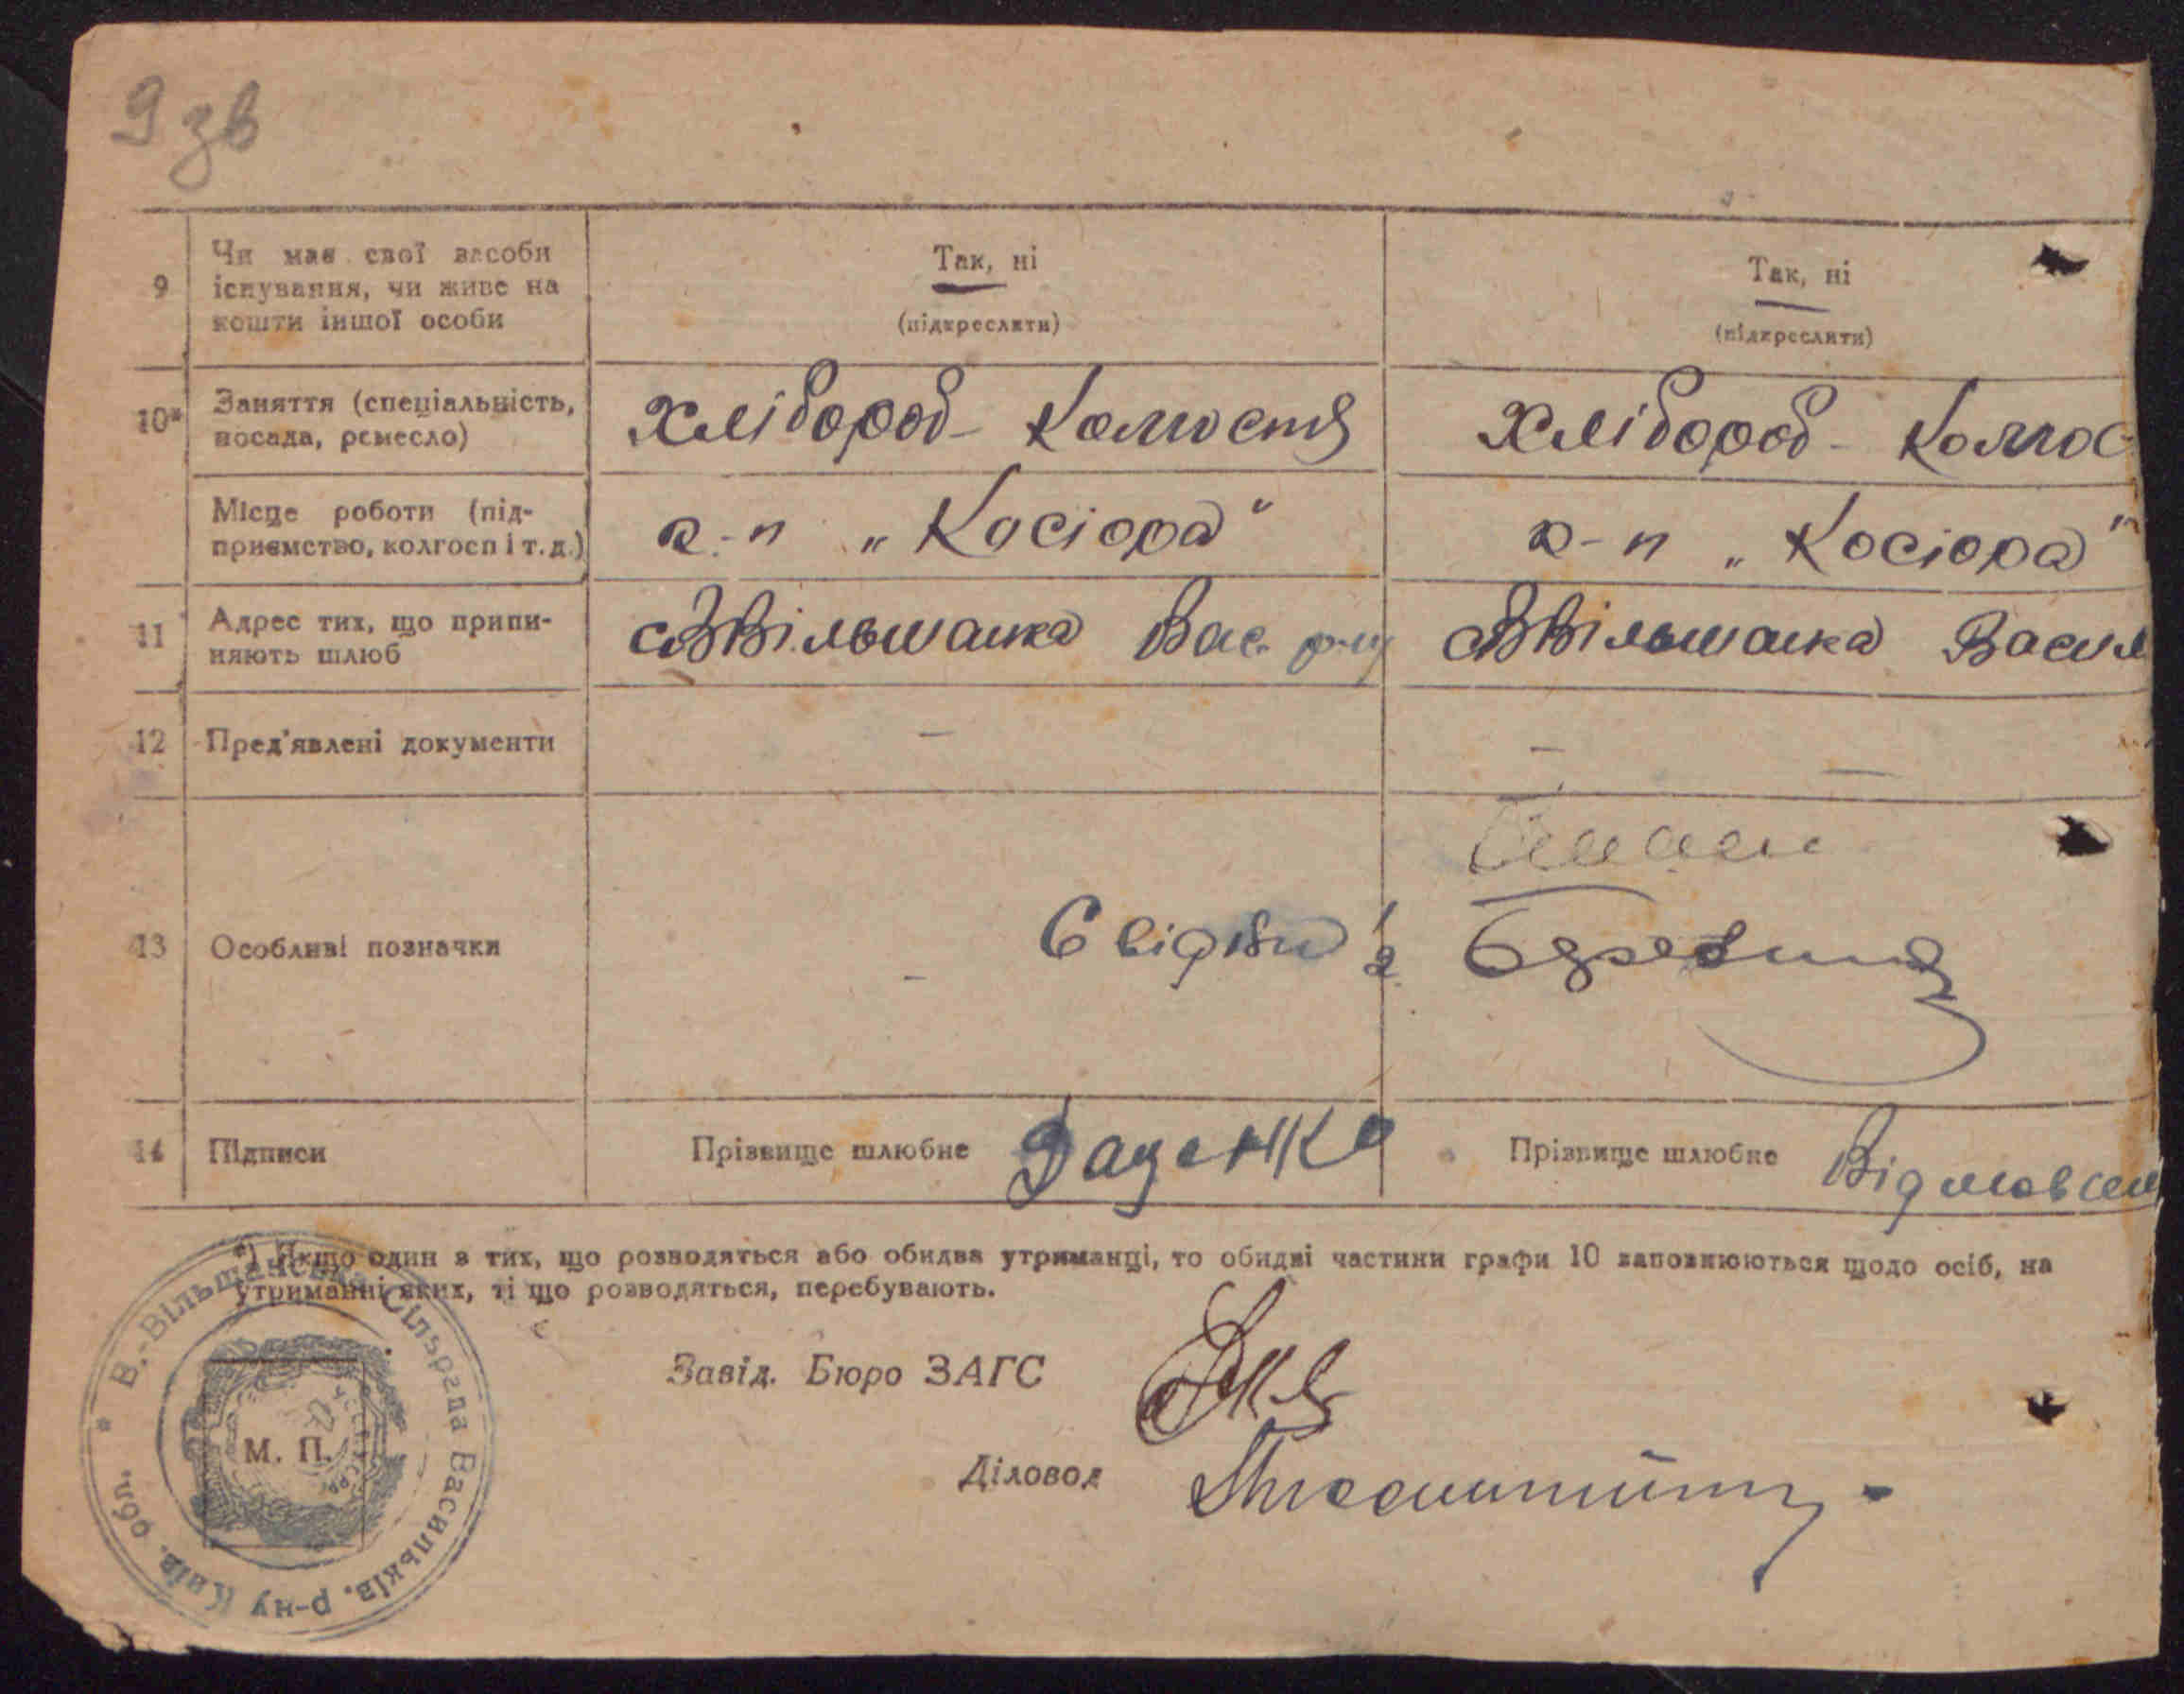 9 зв
9 Чи має свої засоби існування, чи живе на кошти іншої особи
Так, ні
(підкреслити)
Так, ні
(підкреслити)
10* Заняття (спеціальність, посада, ремесло)
Хлібороб-
Хлібороб-
Місце роботи (підприємство, колгосп і т. д.)
к-п „Косіора"
к-п „Косіора"
11 Адрес тих, що припиняють шлюб
Ввільшанка Вас. р-ну
Ввільшанка Васил
12 Пред'явлені документи
—
— —
13 Особливі позначки
–
Свідки
1
2.
14 Підписи
Прізвище шлюбне Даценко
Прізвище шлюбне Відмовсял
*) Якщо один з тих, що розводяться або обидва утриманці, то обидві частини графи 10 заповнюються щодо осіб, на
утриманні яких, ті що розводяться, перебувають.
Завід. Бюро ЗАГС
Діловод
М. П.
В.-Вільшанська Сільрада Васильків. р-ну Київ. обл.